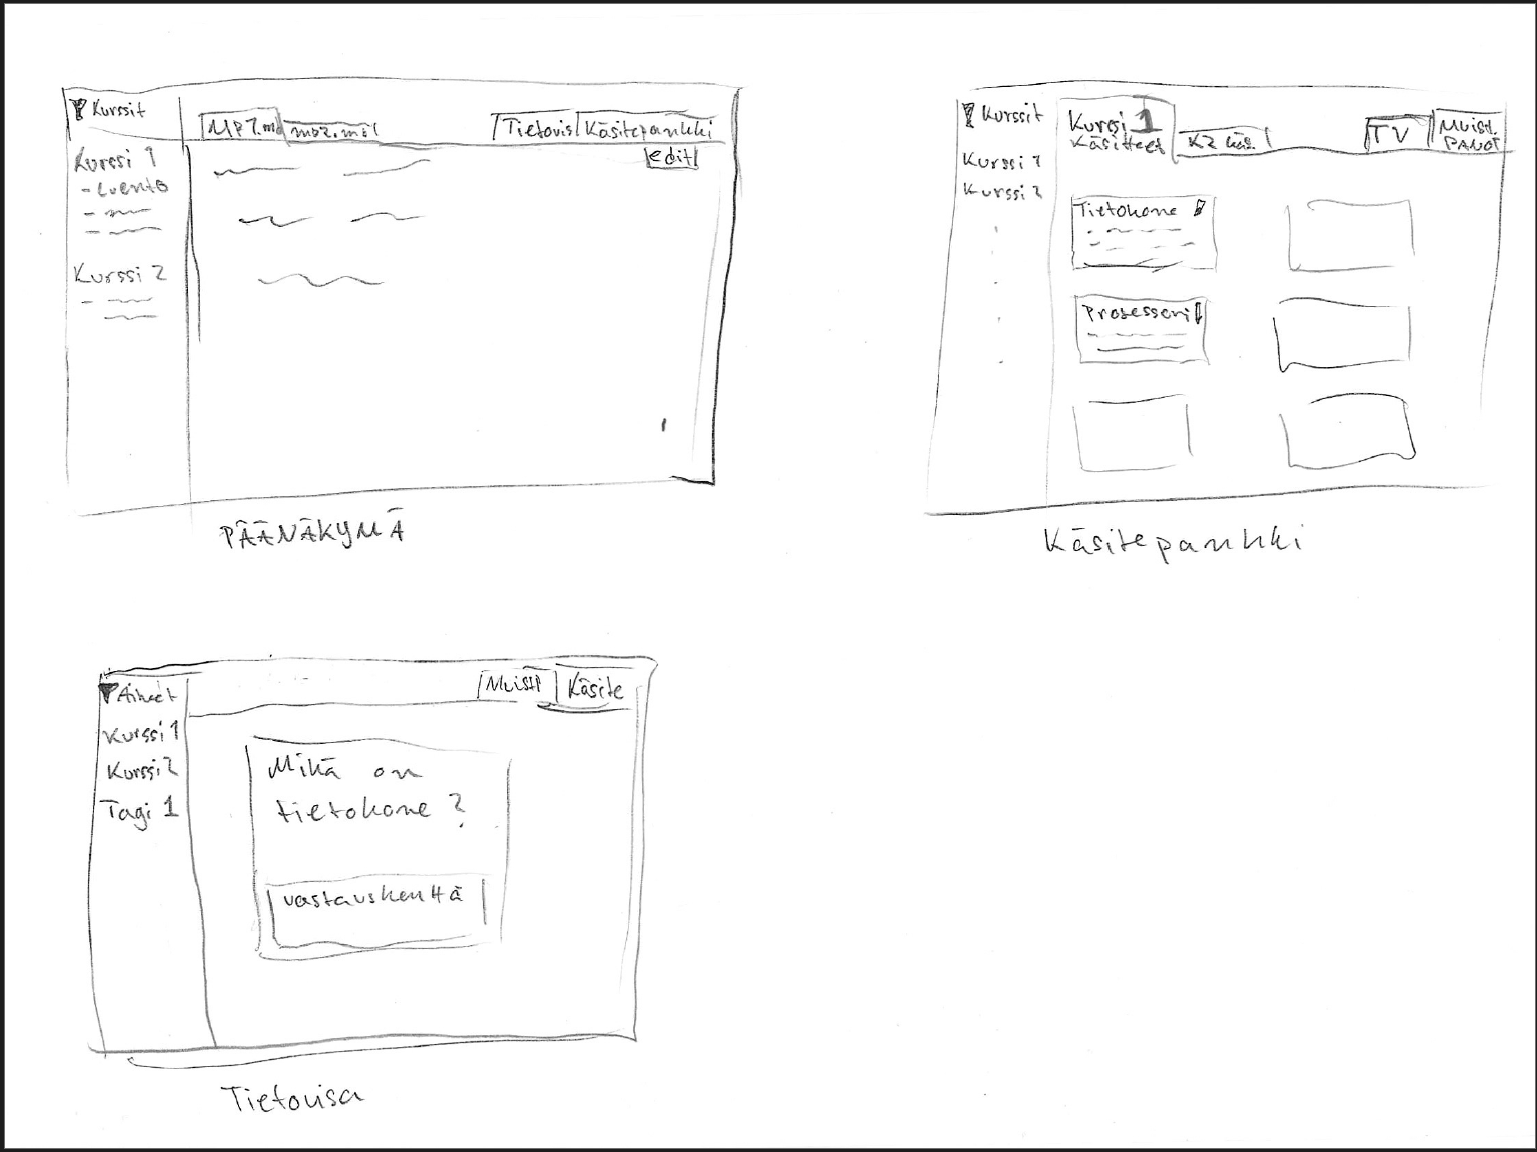 Kurssit
MP1.md mp2.md
Tietovis Käsitepankki
edit
Kurssi 1
- Luento
Kurssi 2
PÄÄNÄKYMÄ
Kurssit
Kurssi 1
Käsitteet
K2 käs.
TV
Muist.
PANOT
Kurssi 1
Kurssi 2
Tietokone
Prosessori
Käsitepankki
Aiheet
Muistp
Käsite
Kurssi 1
Kurssi 2
Tagi 1
Mikä on
tietokone?
vastauskenttä
Tietovisa